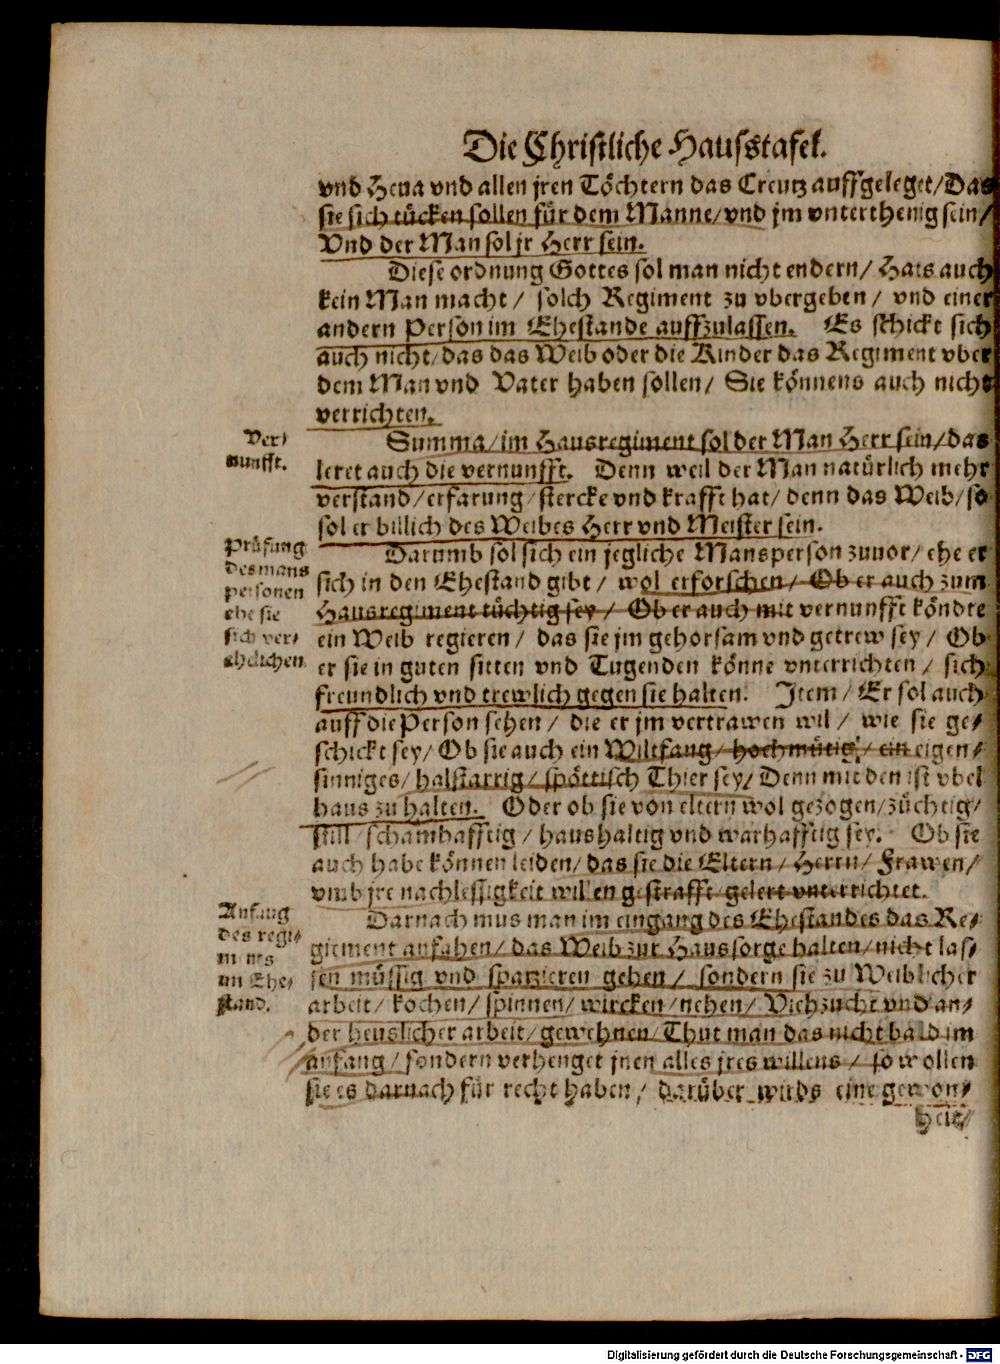 Die Christliche Hausstafel.
vnd Heua vnd allen jren Töchtern das Creutz auffgeleget/Das
sie sich tücken sollen für dem Manne/vnd jm vnterthenig sein/
Vnd der Man sol jr Herr sein.
Diese ordnung Gottes sol man nicht endern/ Hats auch
kein Man macht/ solch Regiment zu vbergeben/ vnd einer
andern Person im Ehestande auffzulassen. Es schickt sich
auch nicht/das das Weib oder die Kinder das Regiment vber
dem Man vnd Vater haben sollen/ Sie könnens auch nicht
verrichten.
Ver/
nunfft.
Summa/im Hausregiment sol der Man Herr sein/das
leret auch die vernunfft. Denn weil der Man natürlich mehr
verstand/erfarung/stercke vnd krafft hat/denn das Weib/so
sol er billich des Weibes Herr vnd Meister sein.
Prüfung
des mans
personen
ehe sie
sich ver/
ehelichen.
Darumb sol sich ein jegliche Mansperson zuuor/ehe er
sich in den Ehestand gibt/ wol erforschen/ Ob er auch zum
Hausregiment tüchtig sey/ Ob er auch mit vernunfft köndte
ein Weib regieren/ das sie jm gehorsam vnd getrew sey/ Ob
er sie in guten sitten vnd Tugenden könne vnterrichten/ sich
freundlich vnd trewlich gegen sie halten. Item/ Er sol auch
auff die Person sehen/ die er jm vertrawen wil/ wie sie ge/
schickt sey/Ob sie auch ein Wiltfang/ hochmütig/ ein eigen/
sinniges/halstarrig/spöttisch Thier sey/Denn mit den ist vbel
haus zu halten. Oder ob sie von eltern wol gezogen/züchtig/
still/schamhafftig/haushaltig vnd warhafftig sey. Ob sie
auch habe können leiden/das sie die Eltern/Herrn/Frawen/
vmb jre nachlessigkeit willen gestrafft gelert vnterrichtet.
Anfang
des regi/
m nts
im Ehe/
stand.
Darnach mus man im eingang des Ehestandes das Re/
giement anfahen/das Weib zur Haussorge halten/nicht las/
sen müssig vnd spatzieren gehen/ sondern sie zu Weiblicher
arbeit/ kochen/ spinnen/ wircken/nehen/ Viehzucht vnd an/
der heuslicher arbeit/gewehnen/Thut man das nicht bald im
anfang/sondern verhenget jnen alles jres willens/ so wollen
sie es darnach für recht haben/ darüber wirds eine gewon/
heit/
Digitalisierung gefördert durch die Deutsche Forschungsgemeinschaft - DFG